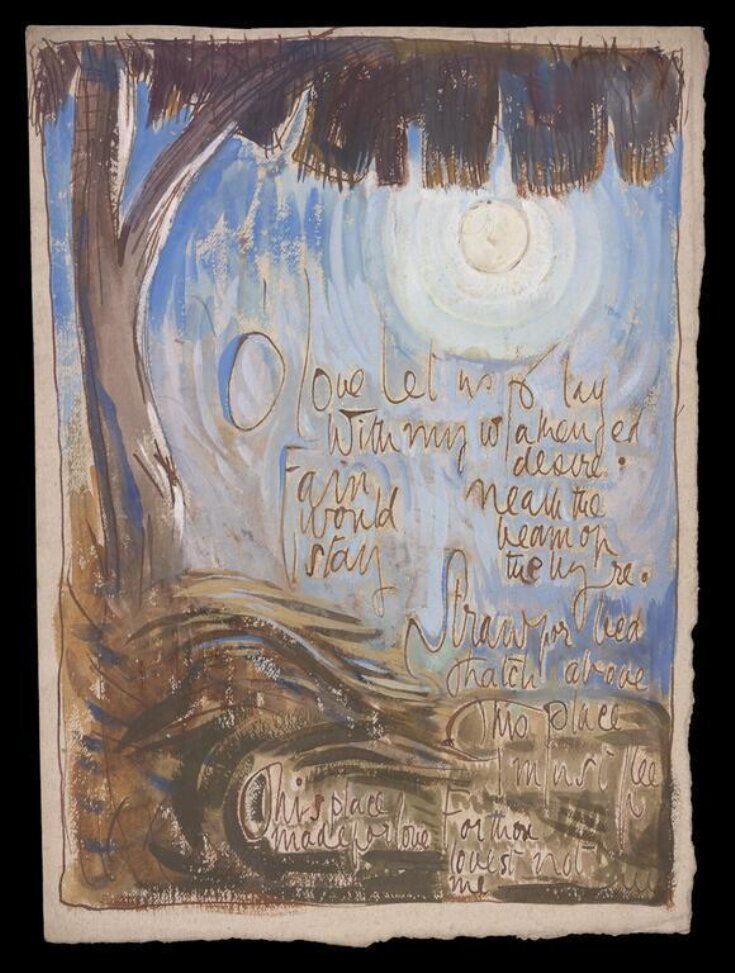 O love let us play
With my
desire:
Fain
would
stay
neath the
beam of
the lyre.
Straw for bed
thatch above
This place
I must flee
This place
made for love
For thou
lovest not
me